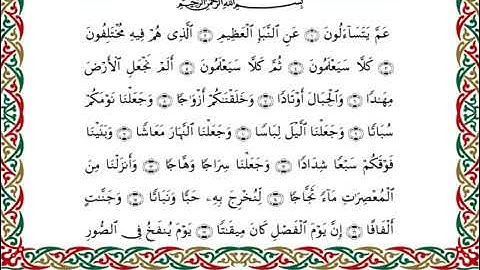 بِسْمِ اللَّهِ الرَّحْمَٰنِ الرَّحِيمِ
عَمَّ يَتَسَآءَلُونَ ۝ عَنِ ٱلنَّبَإِ ٱلْعَظِيمِ ۝ ٱلَّذِى هُمْ فِيهِ مُخْتَلِفُونَ
۝ كَلَّا سَيَعْلَمُونَ ۝ ثُمَّ كَلَّا سَيَعْلَمُونَ ۝ أَلَمْ نَجْعَلِ ٱلْأَرْضَ
مِهَٰدًا ۝ وَٱلْجِبَالَ أَوْتَادًا ۝ وَخَلَقْنَٰكُمْ أَزْوَٰجًا ۝ وَجَعَلْنَا نَوْمَكُمْ
سُبَاتًا ۝ وَجَعَلْنَا ٱلَّيْلَ لِبَاسًا ۝ وَجَعَلْنَا ٱلنَّهَارَ مَعَاشًا ۝ وَبَنَيْنَا
فَوْقَكُمْ سَبْعًا شِدَادًا ۝ وَجَعَلْنَا سِرَاجًا وَهَّاجًا ۝ وَأَنزَلْنَا مِنَ
ٱلْمُعْصِرَٰتِ مَآءً ثَجَّاجًا ۝ لِّنُخْرِجَ بِهِۦ حَبًّا وَنَبَاتًا ۝ وَجَنَّٰتٍ
أَلْفَافًا ۝ إِنَّ يَوْمَ ٱلْفَصْلِ كَانَ مِيقَٰتًا ۝ يَوْمَ يُنفَخُ فِى ٱلصُّورِ